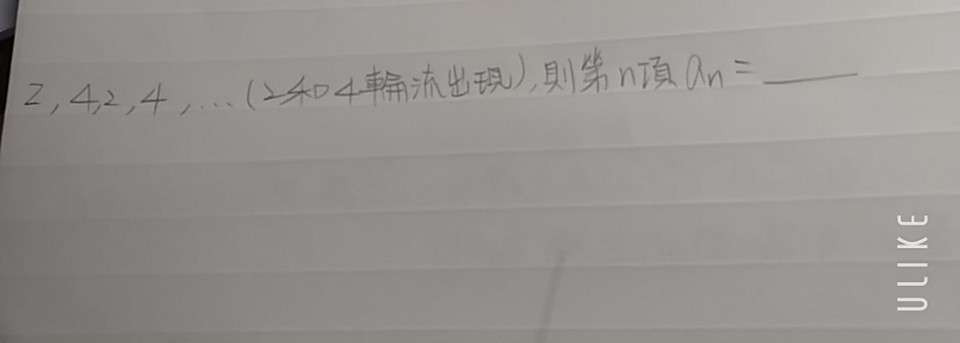 2,4,2,4,...(2和4輪流出現),則第n項an=____
ULIKE